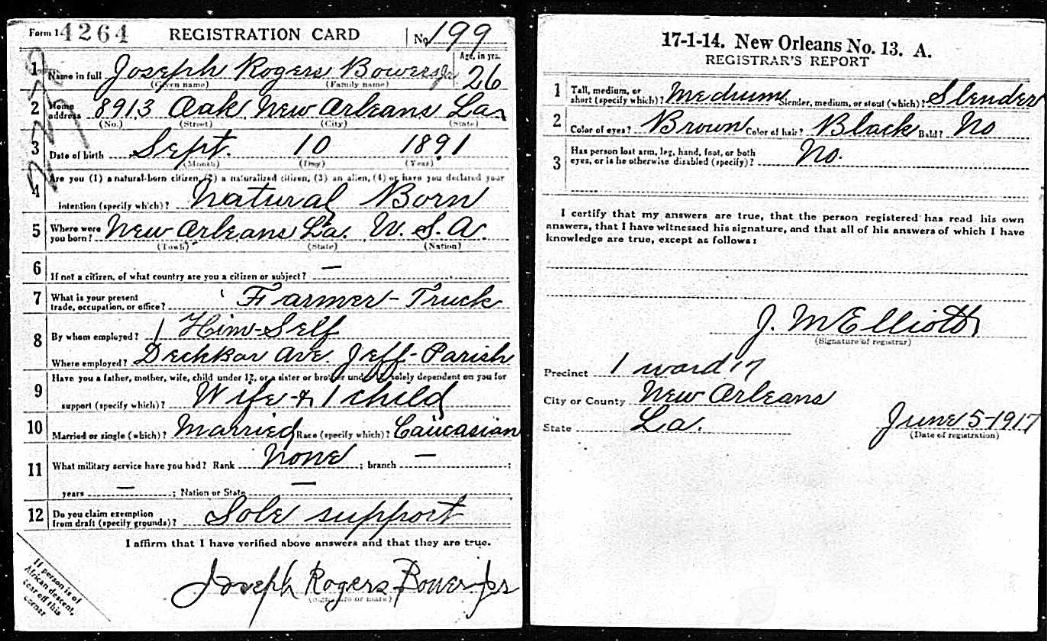 Form 1 4264 REGISTRATION CARD No. 199
1 Name in full Joseph Rogers Bowers Jr Age, in yrs. 26
(Given name) (Family name)
2 Home address 8913 Oak New Orleans La.
(No.) (Street) (City) (State)
3 Date of birth Sept. 10 1891
(Month) (Day) (Year)
4 Are you (1) a natural-born citizen, (2) a naturalized citizen, (3) an alien, (4) or have you declared your
intention (specify which)? Natural Born
5 Where were you born? New Orleans La. U.S.A.
(Town) (State) (Nation)
6 If not a citizen, of what country are you a citizen or subject? —
7 What is your present trade, occupation, or office? Farmer - Truck
8 By whom employed? Him-Self
Where employed? Ave Jeff-Parish
9 Have you a father, mother, wife, child under 12, or a sister or brother under 12, solely dependent on you for
support (specify which)? Wife + 1 child
10 Married or single (which)? Married Race (specify which)? Caucasian
11 What military service have you had? Rank None ; branch — ;
years — ; Nation or State —
12 Do you claim exemption from draft (specify grounds)? Sole support
I affirm that I have verified above answers and that they are true.
Joseph Rogers Bowers Jr
(Signature or mark)
If person is of
African descent,
tear off this
corner
17-1-14. New Orleans No. 13. A.
REGISTRAR'S REPORT
1 Tall, medium, or short (specify which)? Medium Slender, medium, or stout (which)? Slender
2 Color of eyes? Brown Color of hair? Black Bald? No
3 Has person lost arm, leg, hand, foot, or both
eyes, or is he otherwise disabled (specify)? No.
I certify that my answers are true, that the person registered has read his own
answers, that I have witnessed his signature, and that all of his answers of which I have
knowledge are true, except as follows:
J. M Elliott
(Signature of registrar)
Precinct 1 ward 17
City or County New Orleans
State La. June 5-1917
(Date of registration)